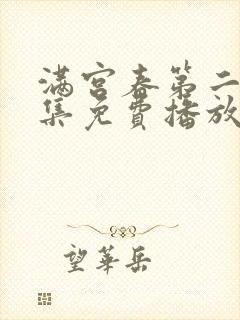 满宫春第二
集免費播放
望華岳